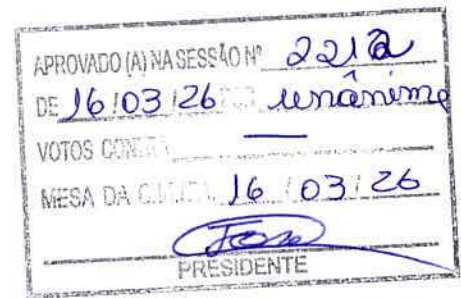 APROVADO (A) NA SESSÃO Nº 2212
DE 16/03/26 unânime
VOTOS
MESA DA 16/03/26
PRESIDENTE